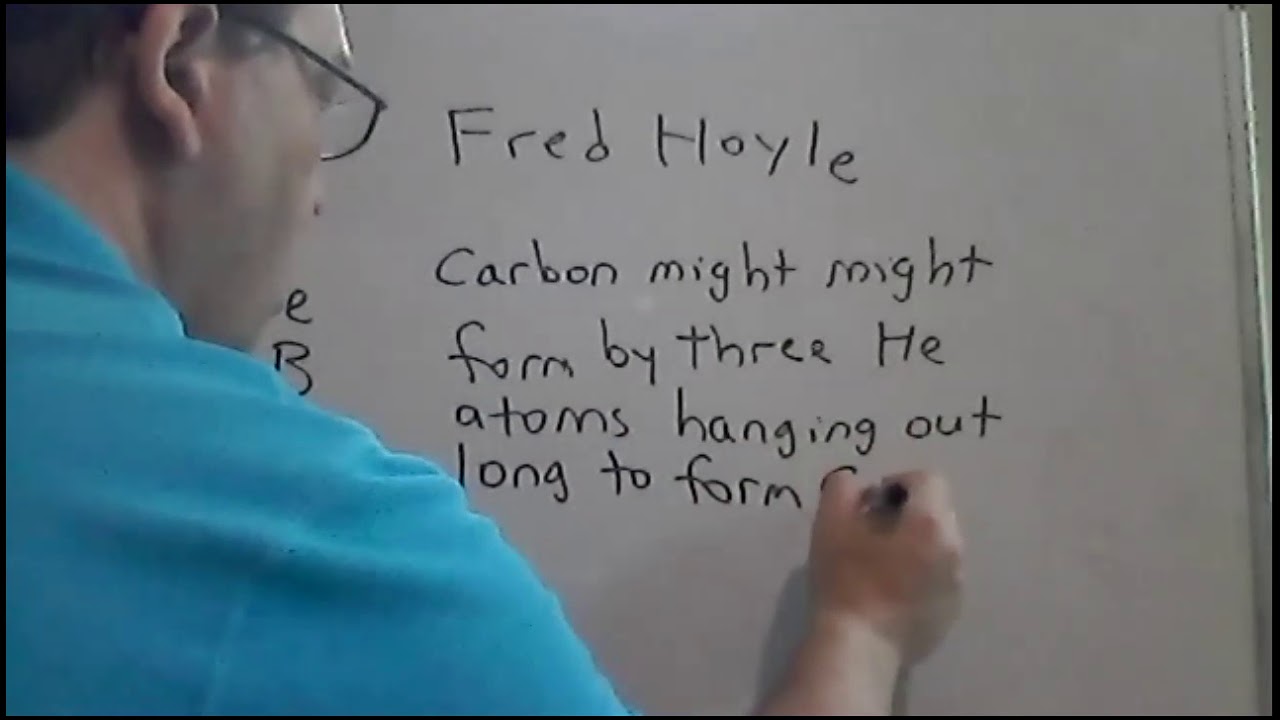 Fred Hoyle
Carbon might might
e
form by three He
B
atoms hanging out
long to form